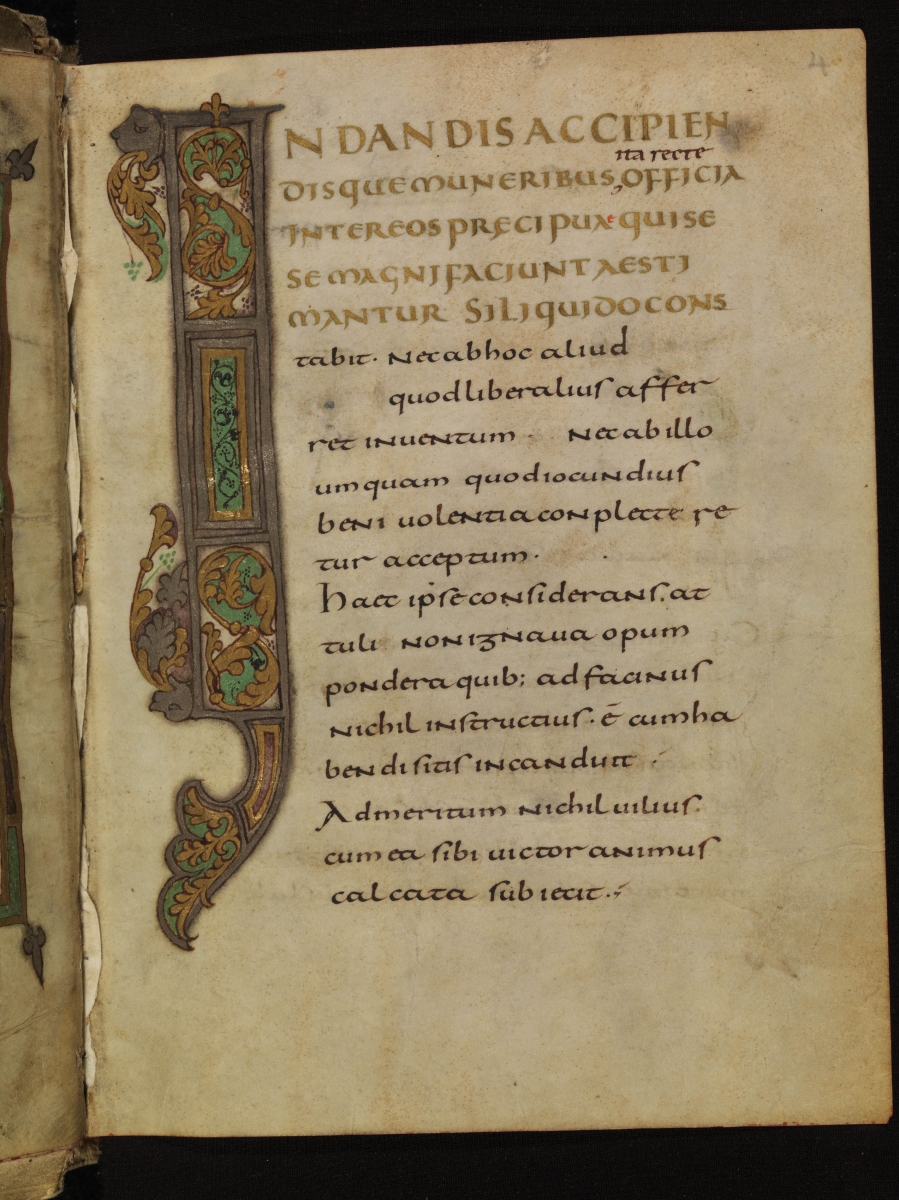 4
IN DANDIS ACCIPIEN
ita recte
DISQUE MUNERIBUS, OFFICIA
INTER EOS PRĘCIPUAE QUI SE
SE MAGNI FACIUNT AESTI
MANTUR SI LIQUIDO CONS
tabit. Nec ab hoc aliud
quod liberalius affer
ret inventum. Nec ab illo
umquam quod iocundius
benivolentia conplecte re
tur acceptum.
haec ipse considerans. at
tuli non ignava opum
pondera quib; ad facinus
nichil instructius. ē cum ha
bendi sitis incanduit.
Ad meritum nichil vilius.
cum ea sibi victor animus
calcata subiecit.